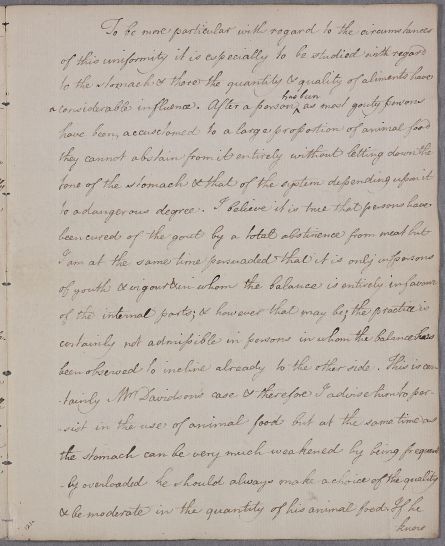 To be more particular with regard to the circumstances
of this uniformity it is especially to be studied with regard
to the stomach & there the quantity & quality of aliments have
a considerable influence. After a person has been, as most gouty persons
have been, accustomed to a large proportion of animal food
they cannot abstain from it entirely without letting down the
tone of the stomach & that of the system depending upon it
to a dangerous degree. I believe it is true that persons have
been cured of the gout by a total abstinence from meat but
I am at the same time persuaded that it is only in persons
of youth & vigour & in whom the balance is entirely in favour
of the internal parts; & however that may be, the practice is
certainly not admissible in persons in whom the balance has
been observed to incline already to the other side. This is cer
-tainly Mr. Davidsons case & therefore I advise him to per-
-sist in the use of animal food but at the same time as
the stomach can be very much weakened by being frequent
-ly overloaded he should always make a choice of the quality
& be moderate in the quantity of his animal food. If he
know